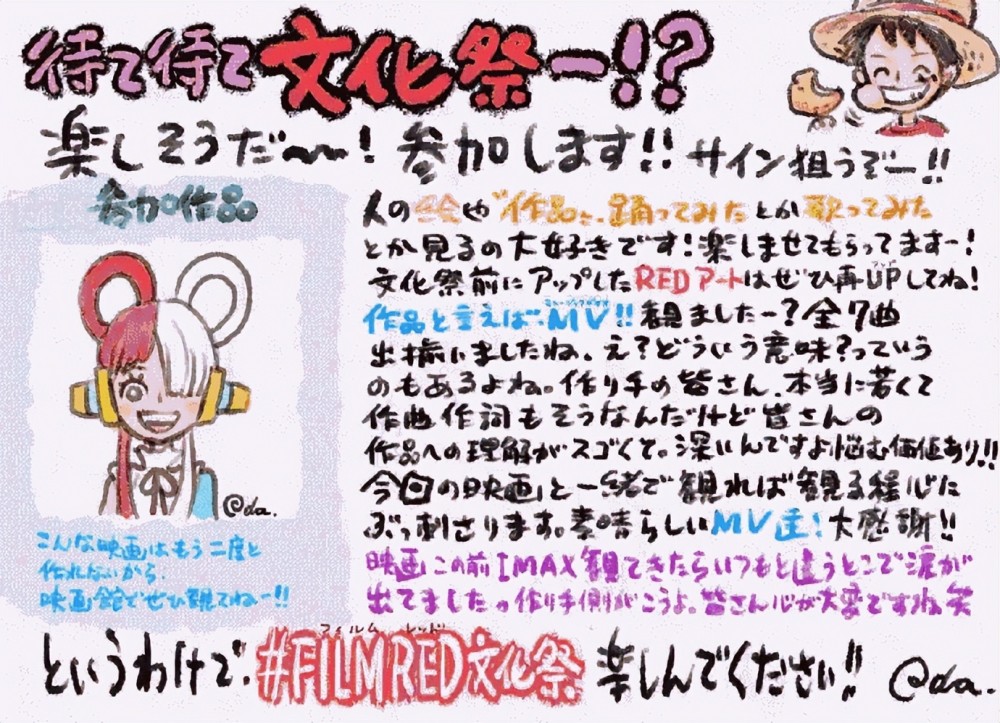 待て待て文化祭ー!?
楽しそうだ〜〜! 参加します!! サイン狙うぞー!!
参加作品
@da.
こんな映画はもう二度と
作れないから、
映画館でぜひ観てねー!!
人の絵や"作品"、踊ってみたとか歌ってみた
とか見るの大好きです!楽しませてもらってますー!
文化祭前にアップしたREDアートはぜひ再UPしてね!
作品と言えば、MV!!観ましたー?全7曲
出揃いましたね、え?どういう意味?っていう
のもあるよね。作り手の皆さん、本当に若くて
作曲作詞もそうなんだけど皆さんの
作品への理解がスゴくて。深いんですよ悩む価値あり!!
今回の映画と一緒で観れば観る程心に
ぶっ刺さります。素晴らしいMV達!大感謝!!
映画この前IMAX観てきたらいつもと違うとこで涙が
出てました。作り手側がこうよ。皆さん心が大変ですね笑
フィルム レッド
というわけで、#FILMRED文化祭 楽しんでください!! @da.